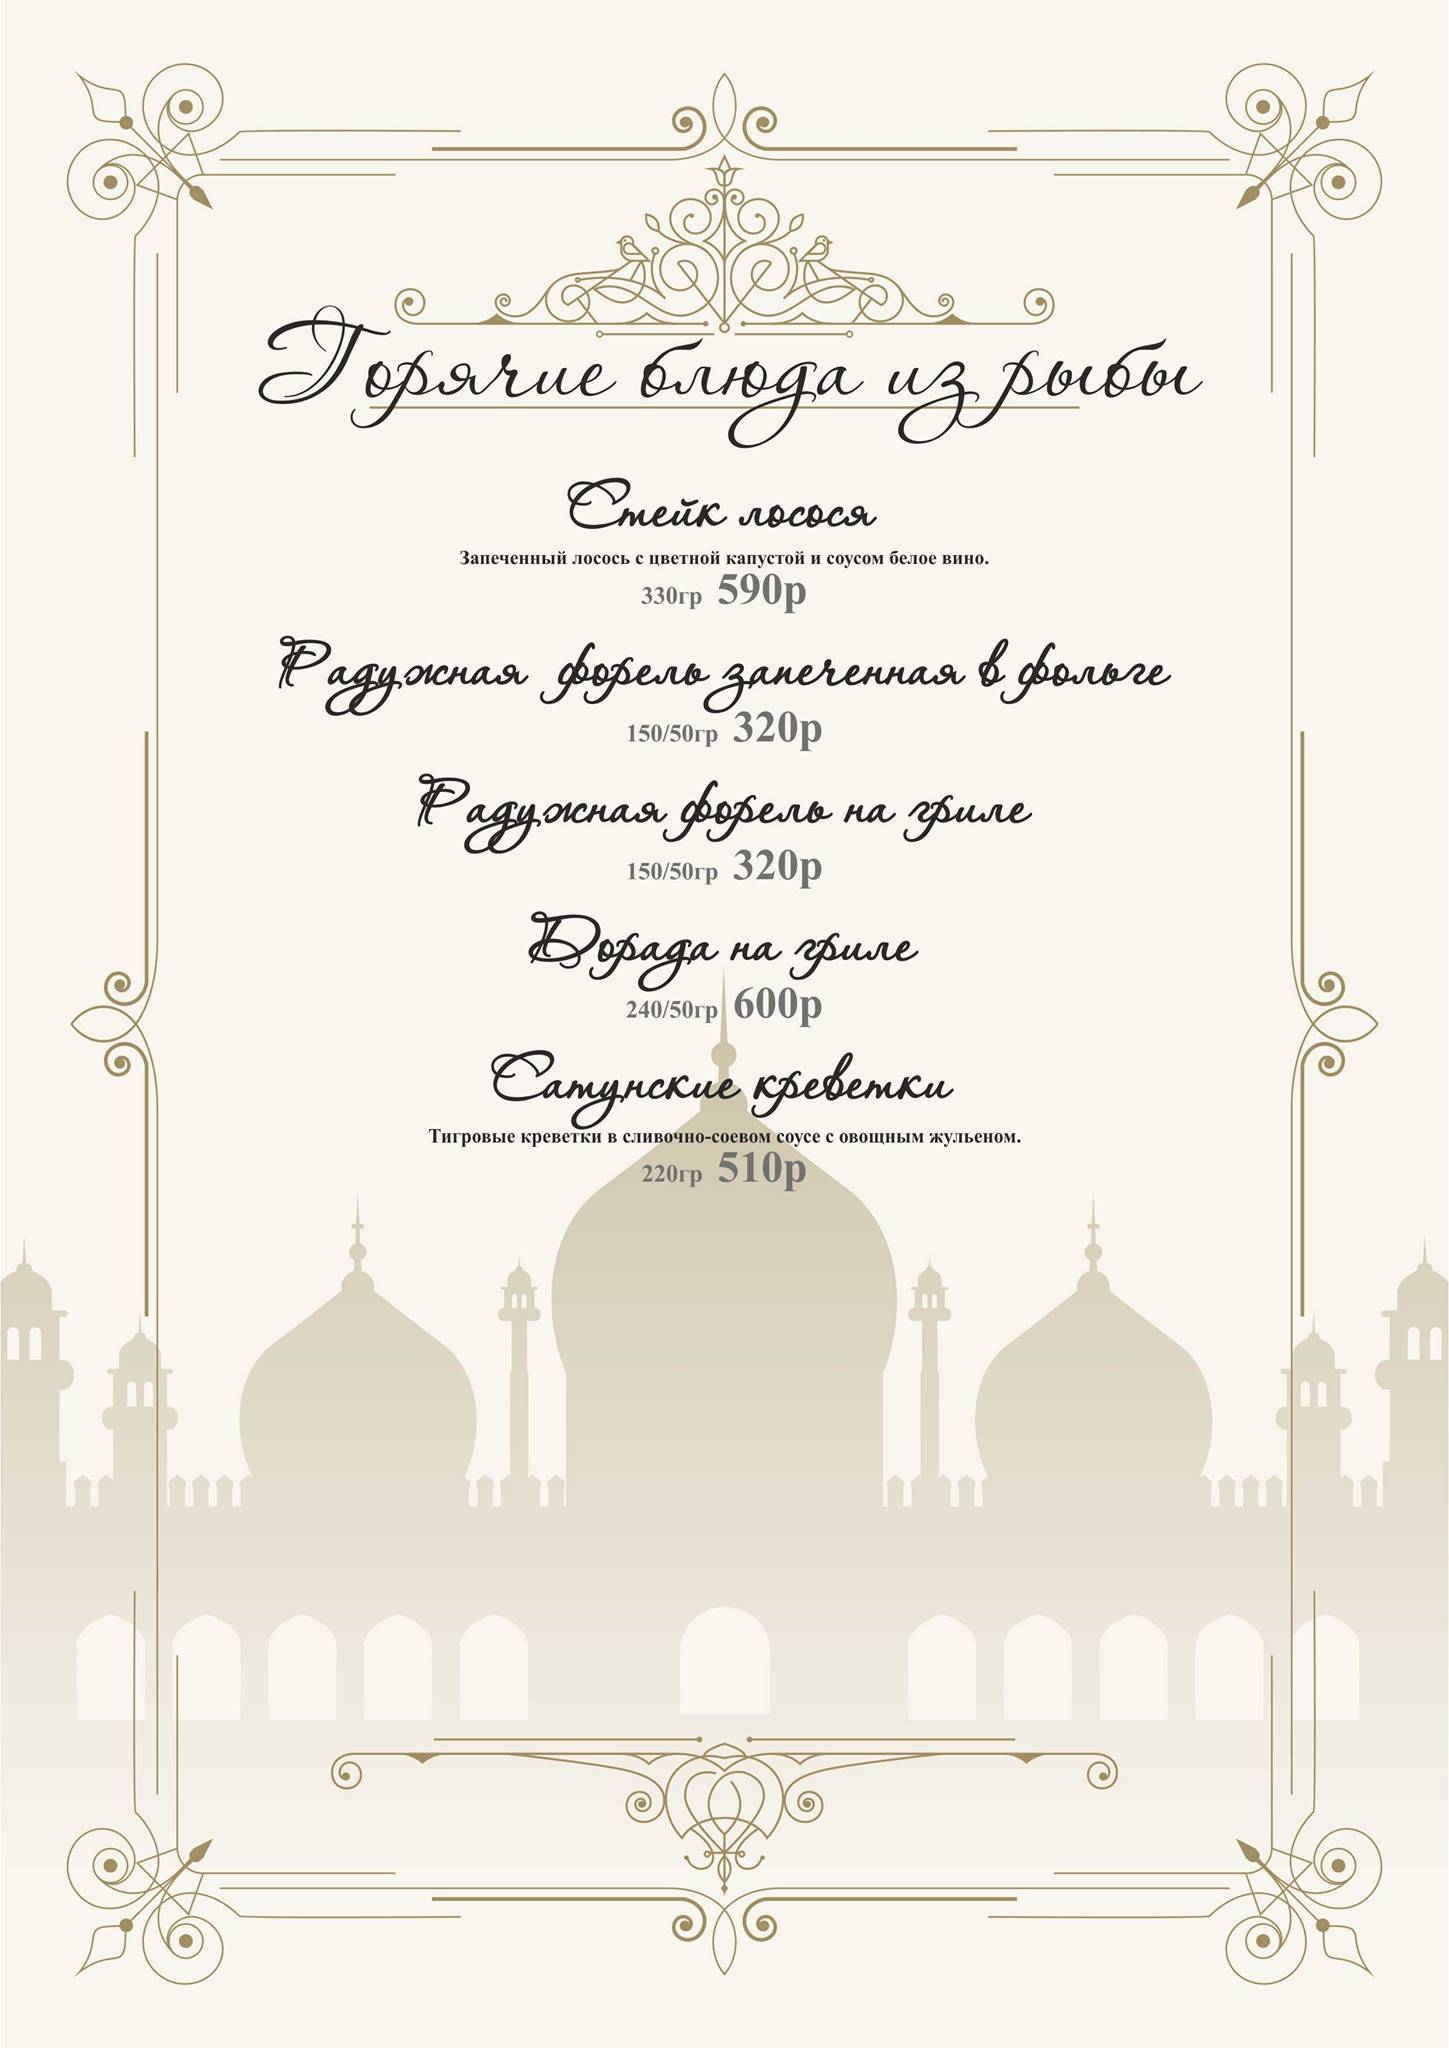 Горячие блюда из рыбы
Стейк лосося
Запеченный лосось с цветной капустой и соусом белое вино.
330гр 590р
Радужная форель запеченная в фольге
150/50гр 320р
Радужная форель на гриле
150/50гр 320р
Дорада на гриле
240/50гр 600р
Сатунские креветки
Тигровые креветки в сливочно-соевом соусе с овощным жульеном.
220гр 510р